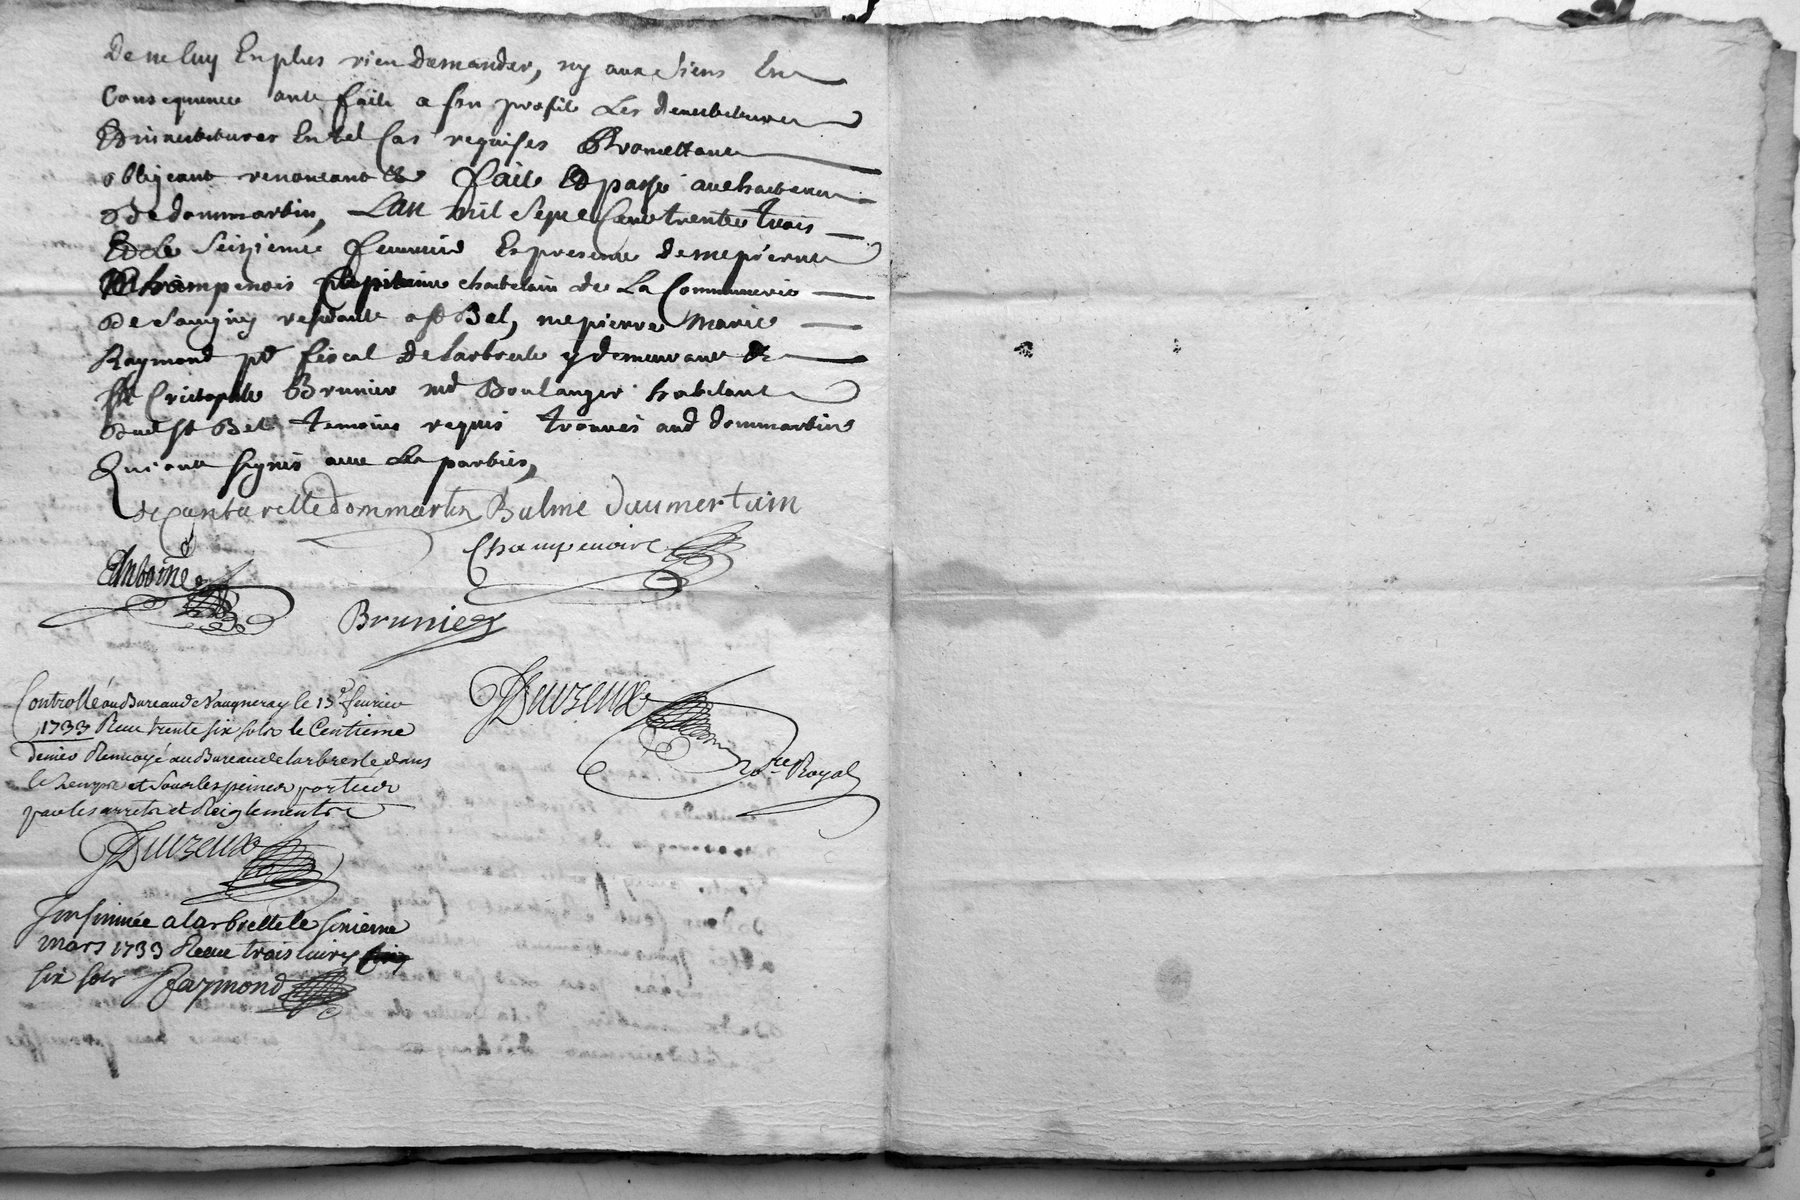 De ne luy En plus rien demander, ny aux siens En
Consequence ont fait a son profit Les devestitures
Et investitures En tel Cas requises Promettant
obligeant renonceant &c fait Et passé au chateau
De dommartin, L'an mil Sept Cent trente trois
Et le Seizieme Fevrier En presence de me pierre
Champenois Capitaine chatelain de La Communerie
De Savigny residant a st Bel, me pierre Marie
Raymond pr fiscal De larbresle y demeurant Et
Sr Cristophle Brunier md Boulanger habitant
Dud st Bel temoins requis trouvés aud dommartin
Qui ont signés avec Les parties,
de cantarelle dommartin Balme daumertain
Champenois
Antoine
Brunier
Controllé au Bureau de Vaugneray le 15e fevrier
1733 Receu trente six sols le Centieme
denier Renvoyé au Bureau de larbresle dans
le temps et sous les peines portées
par les arrets et Reiglements
Duvzeux
Duvzeux
no.re Royal
Insinuée a larbrelle le
mars 1733 Receu trois livres
six sols Raymond